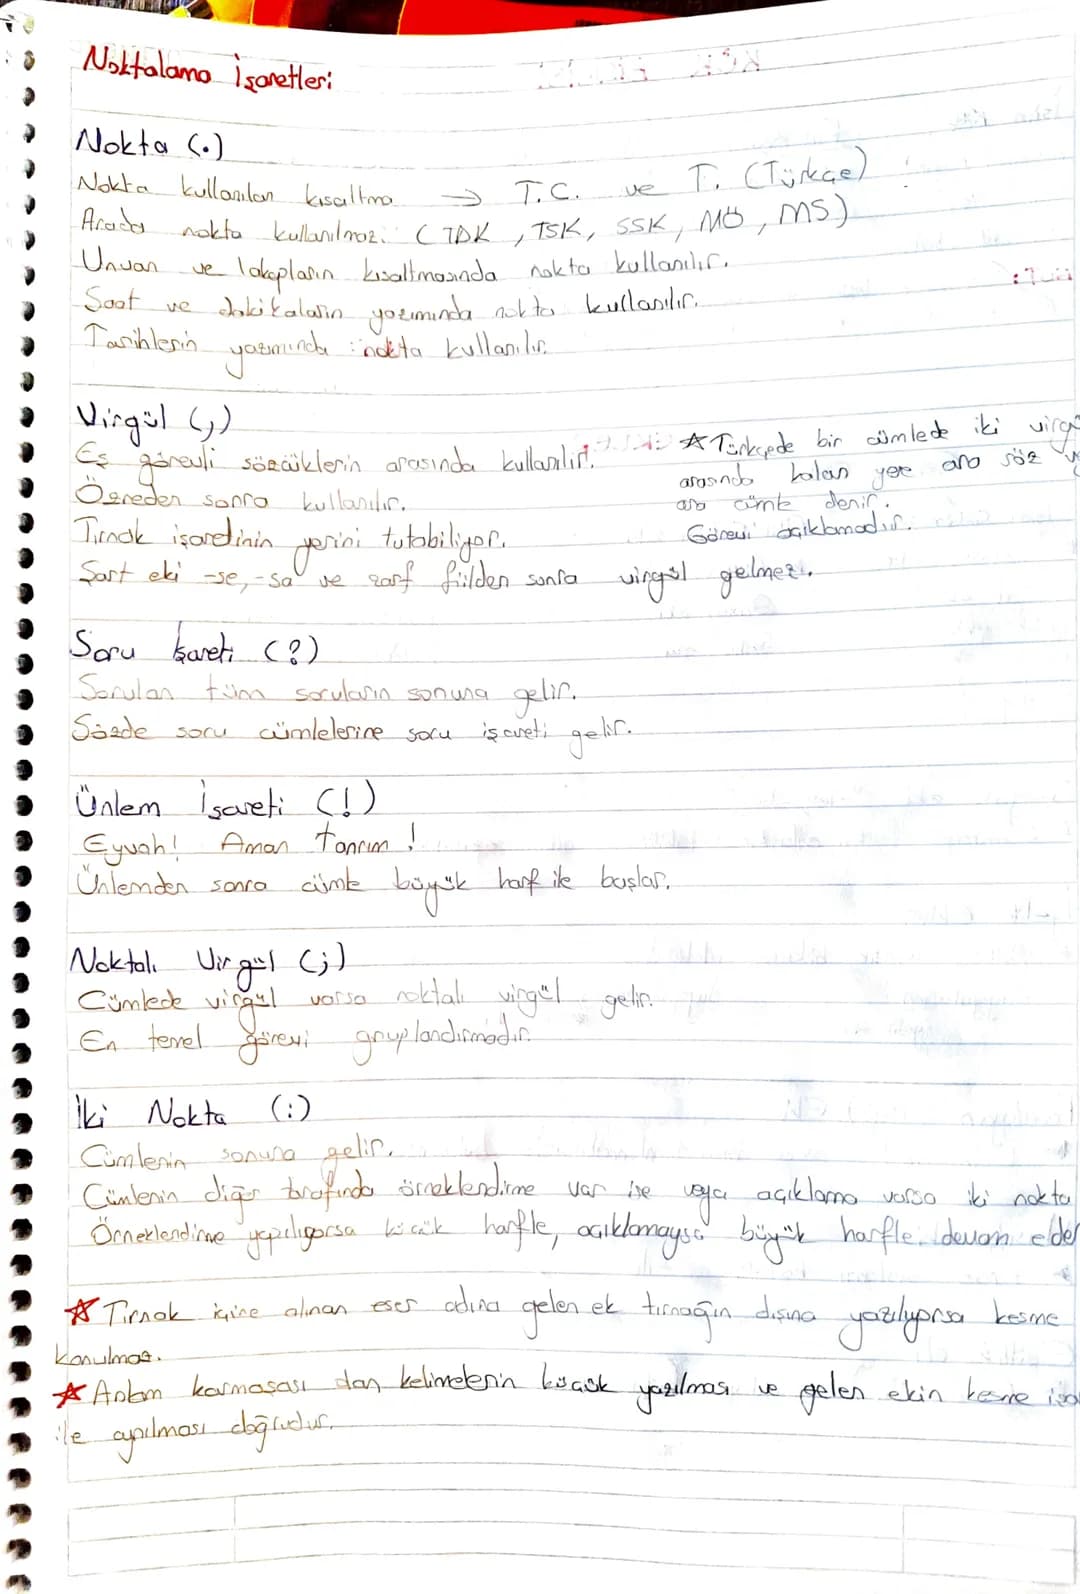 Noktalama İşaretleri
Nokta (.)
Nokta kullanılan kısaltma → T.C. ve T. (Türkçe)
Arada nokta kullanılmaz. (TDK, TSK, SSK, MÖ, MS)
Unvan ve lakapların kısaltmasında nokta kullanılır.
Saat ve dakikaların yazımında nokta kullanılır.
Tarihlerin yazımında nokta kullanılır.
Virgül (,)
Eş görevli sözcüklerin arasında kullanılır.
Ögeden sonra kullanılır.
Tırnak işaretinin yerini tutabiliyor.
Şart eki -se, -sa ve zarf fiilden sonra virgül gelmez.
☆ Türkçede bir cümlede iki virgü
arasında kalan yere ara söz
ara cümle denir.
Görevi açıklamadır.
Soru İşareti (?)
Sorulan tüm soruların sonuna gelir.
Sözde soru cümlelerine soru işareti gelir.
Ünlem İşareti (!)
Eyvah! Aman tanrım!
Ünlemden sonra cümle büyük harf ile başlar.
Noktalı Virgül (;)
Cümlede virgül varsa noktalı virgül gelir.
En temel görevi gruplandırmadır.
İki Nokta (:)
Cümlenin sonuna gelir.
Cümlenin diğer tarafında örneklendirme var ise veya açıklama varsa iki nokta
Örneklendirme yapılıyorsa küçük harfle, açıklamaysa büyük harfle devam eder
☆ Tırnak içine alınan eser adına gelen ek tırnağın dışına yazılıyorsa kesme
konulmaz.
☆ Anlam karmaşası dan kelimelerin küçük yazılması ve gelen ekin kesme işa
ile ayrılması doğrudur.